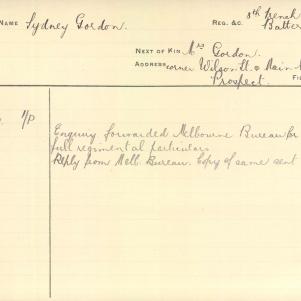 NAME Sydney Gordon. REG. &C. 8th Trench
Batter
NEXT OF KIN Mrs Gordon.
ADDRESS corner Wilson St. & Main
Prospect.
FI
7/P
Enquiry forwarded Melbourne Bureau for
full regimental particulars
Reply from Melb. Bureau. Copy of same sent